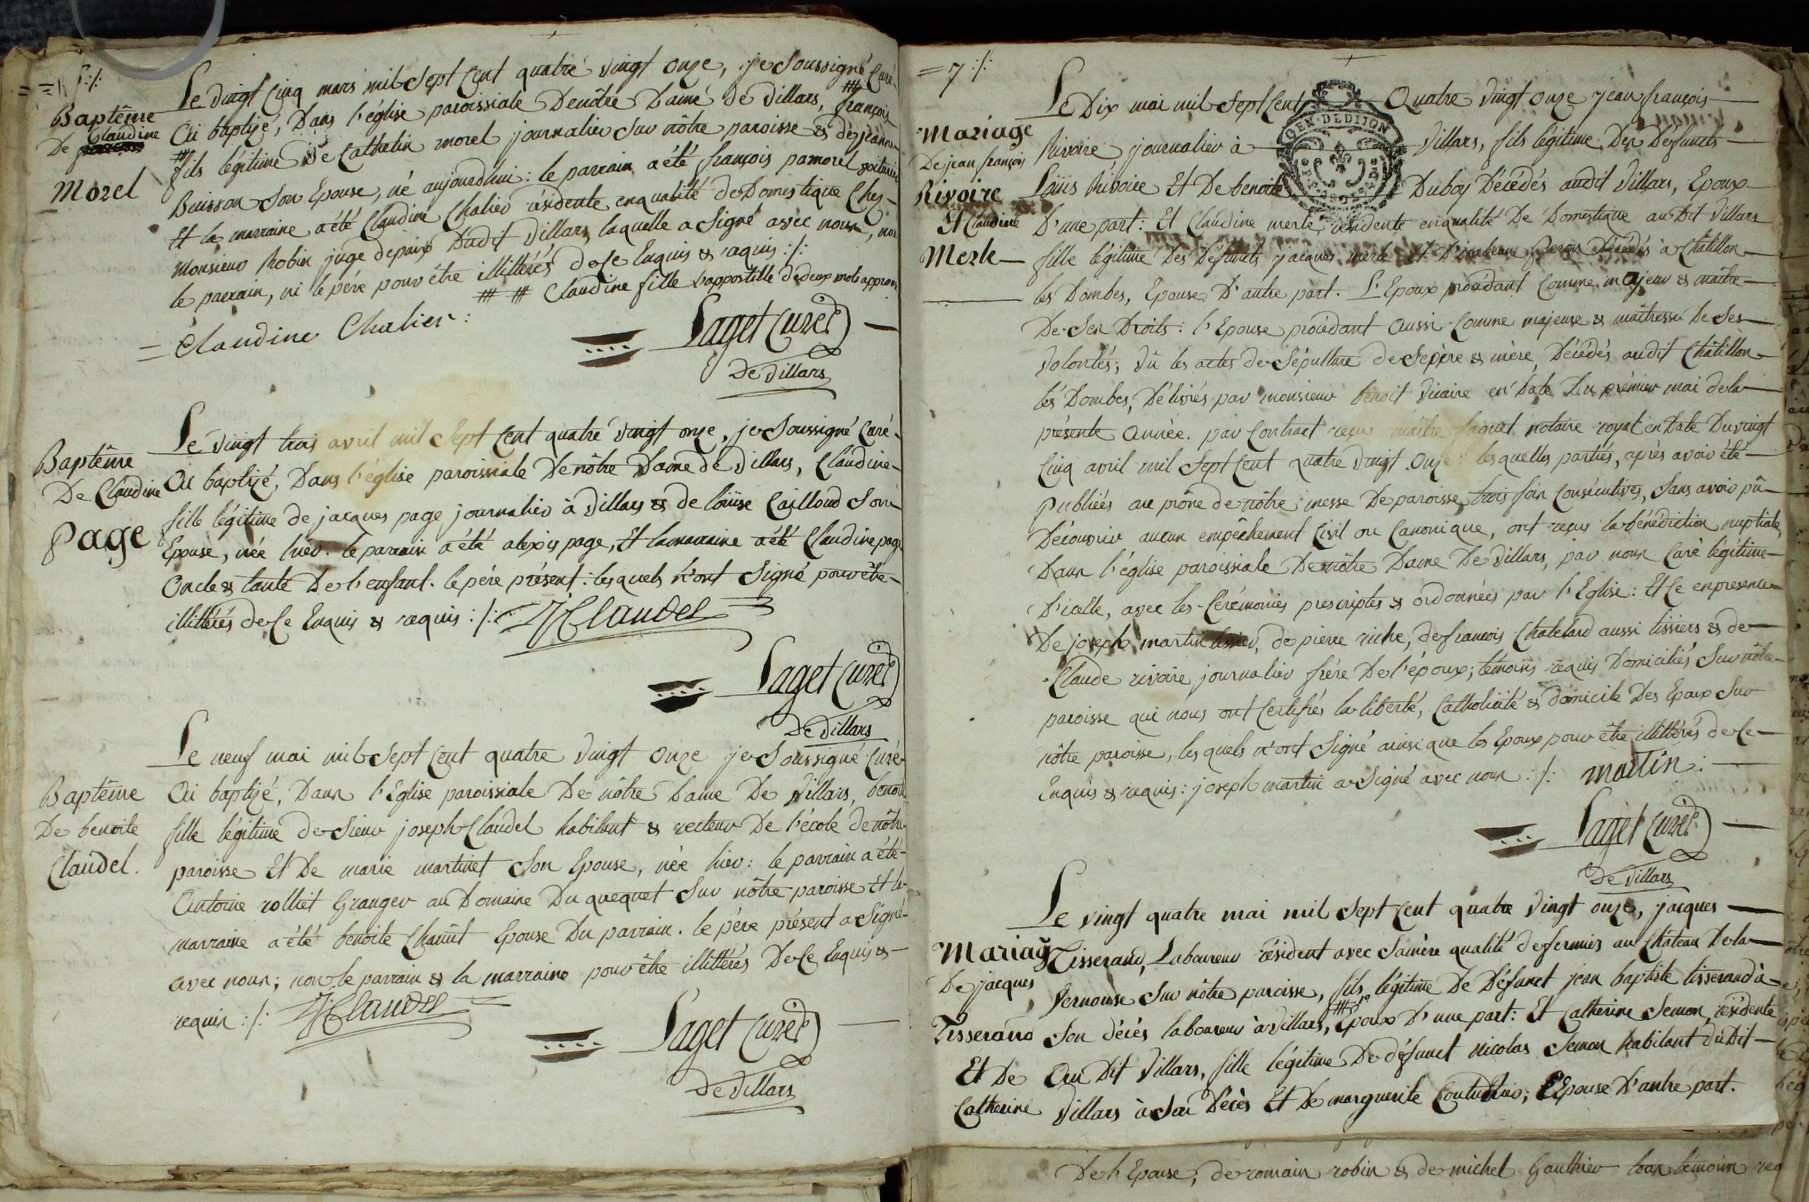 Le vingt cinq mars mil sept cent quatre vingt onze, je soussigné Curé
Baptême
De Claudine
Morel
Ai baptizé, Dans l'église paroissiale De nôtre Dame De Villars, françois
fils légitime De Cathelin morel journalier sur nôtre paroisse & de jeanne
Buisson son Epouse, né aujourdhui : le parrain a été françois pamorel
Et la marraine a été Claudine Chalier résidente en qualité de Domestique Chez
Monsieur Robin juge depaix Dudit Villars laquelle a signé avec nous, non
le parrain, ni le pére pour être illittérés de Ce Enquis & requis :/:
## Claudine fille l'appostille de deux mots approuvé
= Claudine Chalier :
Laget Curé
De Villars
Le vingt trois avril mil sept Cent quatre vingt onze, je soussigné Curé
Baptême
De Claudine
Page
Ai baptizé, Dans l'église paroissiale De nôtre Dame de Villars, Claudine
fille légitime de jacques page journalier à Villars & de loüise Cailloud son
Epouse, née hier : le parrain a été alexis page, Et la marraine a été Claudine page
oncle & tante De l'enfant. le pére présent : lesquels n'ont signé pour être
illittérés de Ce Enquis & requis :/: JClaudel
Laget Curé
De Villars
Le neuf mai mil sept Cent quatre vingt onze je soussigné Curé
Baptême
De benoite
Claudel.
Ai baptizé, Dans l'Eglise paroissiale De nôtre Dame De Villars, benoite
fille légitime de Sieur joseph Claudel habitant & recteur De l'école de nôtre
paroisse Et De marie martinet son Epouse, née hier : le parrain a été
Antoine rolliet Granger au Domaine Du quequet sur nôtre paroisse Et la
marraine a été benoite Epouse Du parrain. le pére présent a signé
avec nous ; non le parrain & la marraine pour être illittérés De Ce Enquis &
requis :/: JClaudel
Laget Curé
De Villars
= 7 :/:
Le Dix mai mil sept Cent Quatre vingt onze jean françois
GEN. DE DIJON
Mariage
De jean françois
Rivoire
Et Claudine
Merle
Rivoire journalier à Villars, fils légitime Des Défunts
Loüis Rivoire Et De benoite Duboy Décédés audit Villars, Epoux
D'une part : Et Claudine merle résidente en qualité De Domestique au Dit Villars
fille légitime Des Défunts jacques merle Décédés à Chatillon
les Dombes, Epouse D'autre part. L'Epoux procédant Comme majeur & maître
De ses Droits : l'Epouse procédant aussi Comme majeure & maîtresse De ses
volontés ; vû les actes de sépulture de se père & mère Décédés audit Châtillon
lès Dombes, Délivrés par monsieur benoit vicaire en Date Du prémier mai de la
présente année. par Contract reçu maître notaire royal en Date Du vingt
Cinq avril mil Sept Cent quatre vingt onze : lesquelles parties, après avoir été
Publiées au prône de nôtre messe De paroisse trois fois Consécutives, sans avoir pû
Découvrir aucun empêchement Civil ou Canonique, ont reçu la bénédiction nuptiale
Dans l'église paroissiale De nôtre Dame De Villars, par nous Curé légitime
D'icelle, avec les Cérémonies prescriptes & ordonnées par l'Eglise : Et Ce en présence
De joseph martin tissier, de pierre riche, de francois Chatelard aussi tissiers & de
Claude rivoire journalier frére De l'époux, témoins requis Domiciliés sur nôtre
paroisse qui nous ont Certifiés la liberté, Catholicité & domicile Des Epoux sur
nôtre paroisse, lesquels n'ont signé ainsi que les Epoux pour être illittérés de Ce
Enquis & requis : joseph martin a signé avec nous :/: martin :
Laget Curé
De Villars
Le vingt quatre mai mil sept Cent quatre vingt onze, jacques
Mariage
De jacques
Tisserand
Et De
Catherine
Tisserand, Laboureur résident avec sa mère qualité de fermier au Château De la
fernouse sur nôtre paroisse, fils légitime De Défunct jean baptiste tisserand à
son décès laboureur à Villars, Epoux D'une part : Et Catherine Semon, résidente
Au Dit Villars, fille légitime De défunct nicolas Semon habitant du Dit
Villars à son Décès Et De marguerite ; l'Epouse D'autre part.
De l'Epouse, de romain robin & de michel Gauthier tous témoins req